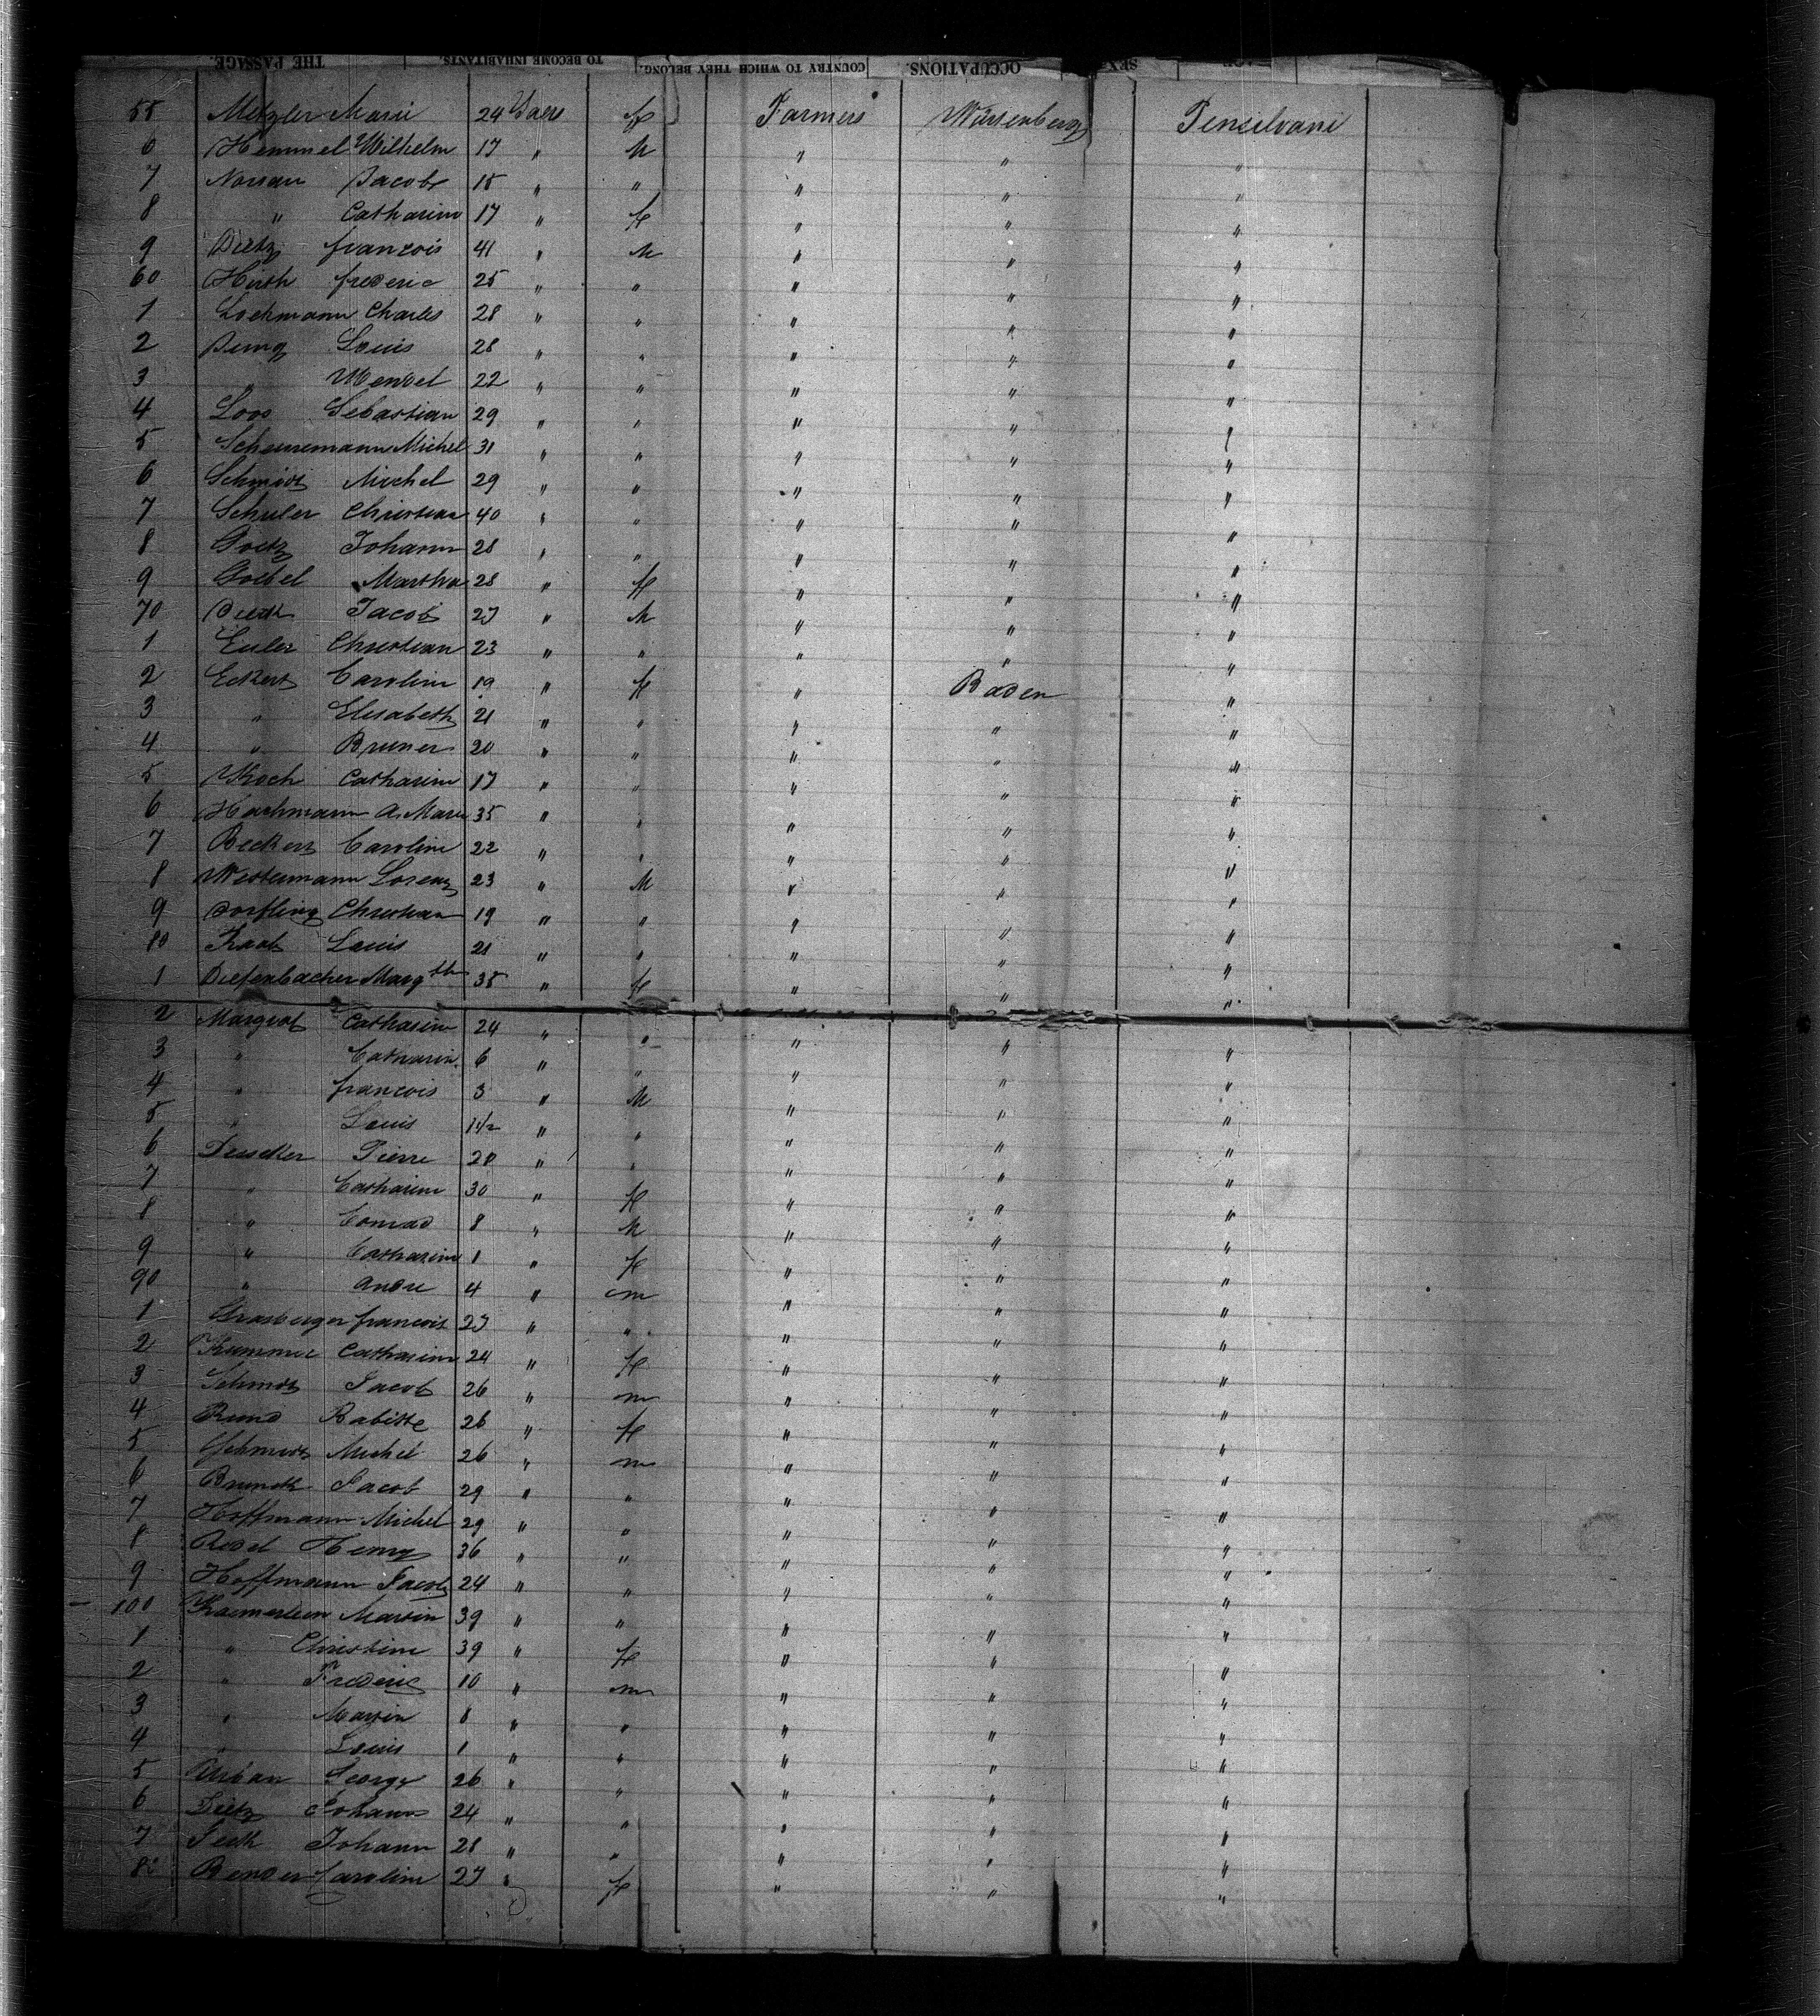 THE PASSAGE. TO BECOME INHABITANTS. COUNTRY TO WHICH THEY BELONG. OCCUPATIONS. SEX
55 Metzler Marie 24 Years f Farmers Würtenberg Penselvani
6 Hemmel Wilhelm 17 " M " " "
7 Jacob 18 " " " " "
8 " Catharine 17 " f " " "
9 Dietz francois 41 " M " " "
60 Hirth frederic 25 " " " " "
1 Lochmann Charles 28 " " " " "
2 Louis 28 " " " " "
3 " Wendel 22 " " " " "
4 Loos Sebastian 29 " " " " "
5 Scheuremann Michel 31 " " " " "
6 Schmidt Michel 29 " " " " "
7 Schuler Christian 40 " " " " "
8 Goetz Johann 28 " " " " "
9 Goebel Martha 28 " f " " "
70 Jacob 27 " M " " "
1 Euler Christian 23 " " " " "
2 Eckert Caroline 19 " f " Baden "
3 " Elisabeth 21 " " " " "
4 " Bruner 20 " " " " "
5 Koch Catharine 17 " " " " "
6 Hachmann A. Marie 35 " " " " "
7 Beckert Caroline 22 " " " " "
8 Westermann Lorenz 23 " M " " "
9 Dorfling Christian 19 " " " " "
80 Louis 21 " " " " "
1 Diefenbacher Margth 35 " f " " "
2 Marquat Catharine 24 " " " " "
3 " Catharin 6 " " " " "
4 " francois 3 " M " " "
5 " Louis 1 1/2 " " " " "
6 Druscker Pierre 28 " " " " "
7 " Catharine 30 " f " " "
8 " Conrad 8 " M " " "
9 " Catharine 1 " f " " "
90 " Andre 4 " m " " "
1 Grasberger francois 27 " " " " "
2 Kummer Catharine 24 " f " " "
3 Schmidt Jacob 26 " m " " "
4 Babitte 26 " f " " "
5 Schmidt Michel 26 " m " " "
6 Jacob 29 " " " " "
7 Hoffmann Michel 29 " " " " "
8 Henry 36 " " " " "
9 Hoffmann Jacob 24 " " " " "
100 Kaemerlein Martin 39 " " " " "
1 " Christine 39 " f " " "
2 " Frederic 10 " m " " "
3 " Martin 8 " " " " "
4 " Louis 1 " " " " "
5 Urban George 26 " " " " "
6 Dietz Johann 24 " " " " "
7 Johann 28 " " " " "
8 Bender Caroline 27 " f " " "